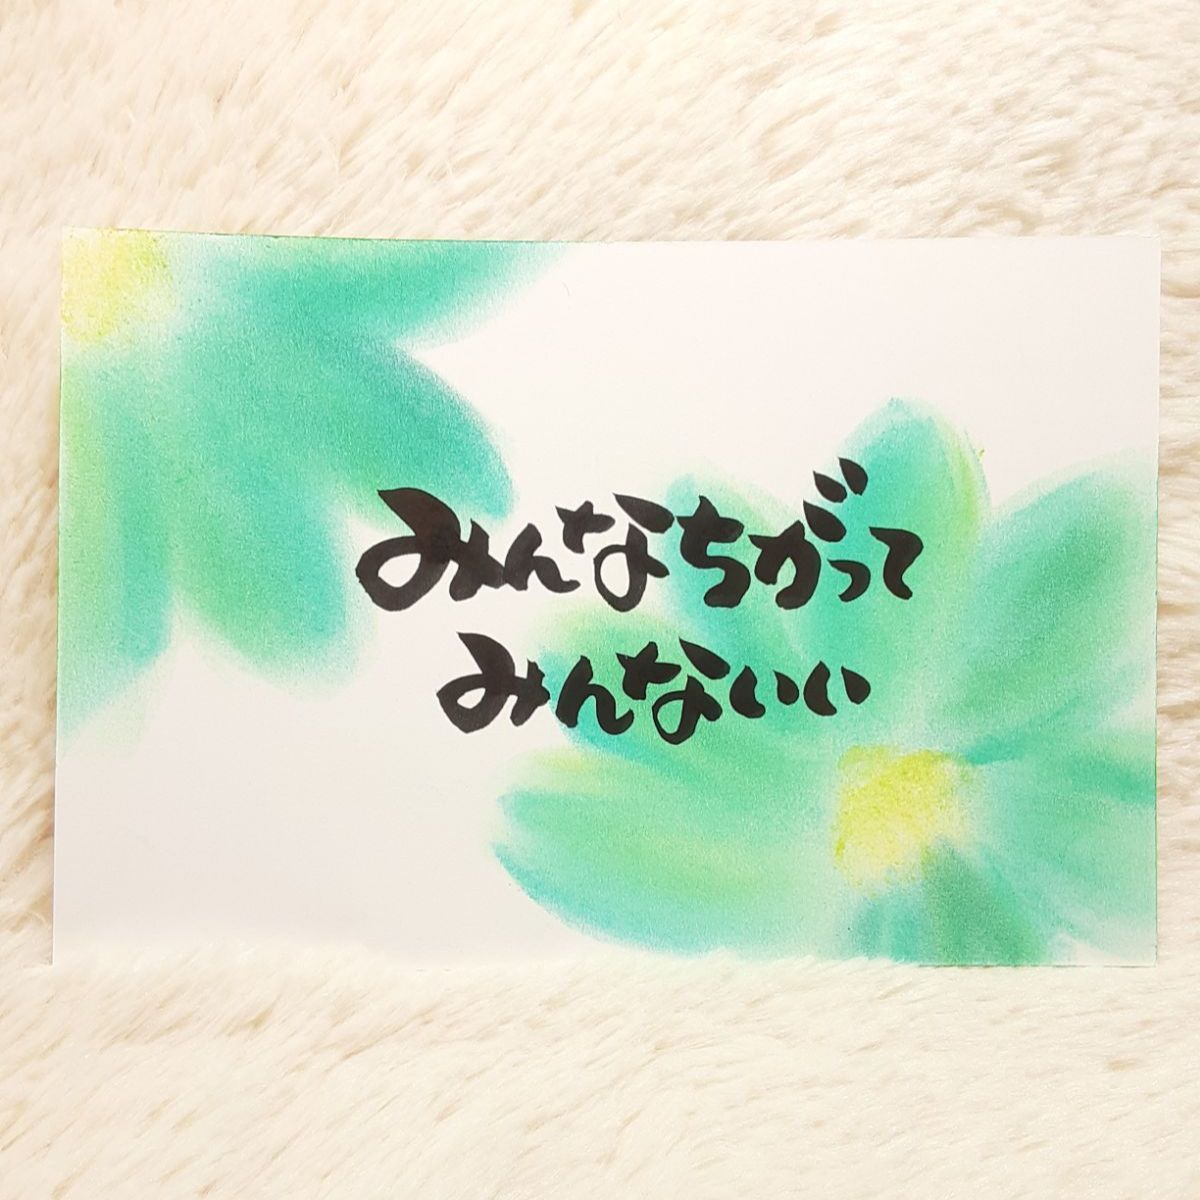 みんなちがって
みんないい